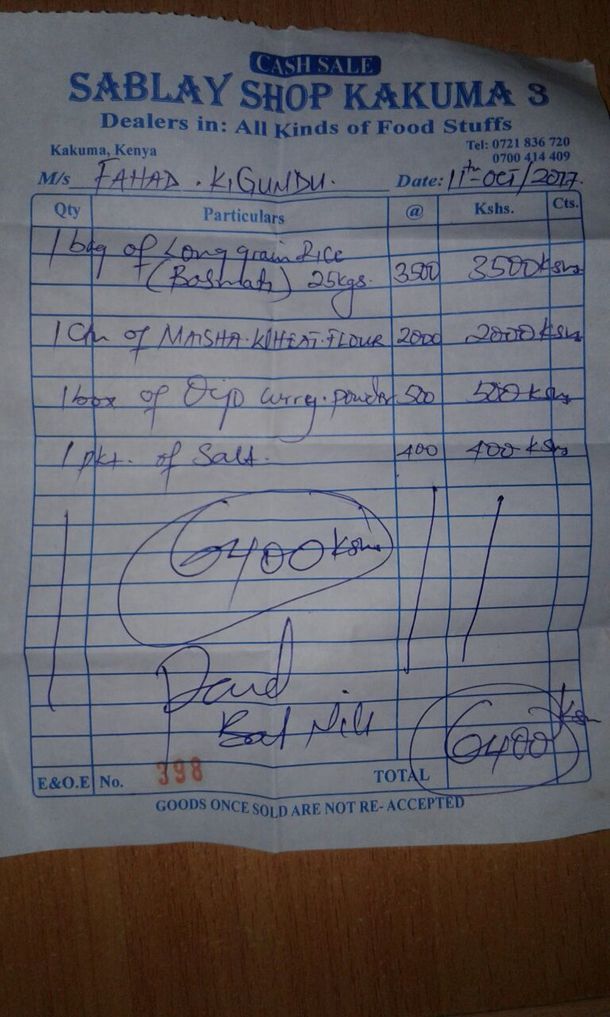 CASH SALE
SABLAY SHOP KAKUMA 3
Dealers in: All Kinds of Food Stuffs
Kakuma, Kenya
Tel: 0721 836 720
0700 414 409
M/s FAHAD . KIGUNDU.
Date: 11th-OCT/2017
Qty Particulars @ Kshs. Cts.
1 bag of Long grain Rice
(Basmati) 25kgs. 3500 3500 Kshs
1 Ctn of MAISHA. WHEAT. FLOUR 2000 2000 Kshs
1 box of curry. powder 500 500 Kshs
1 pkt. of Salt. 400 400 Kshs
6400 Kshs
Paid
Bal Nill
6400 Ksh
E&O.E No. 398 TOTAL
GOODS ONCE SOLD ARE NOT RE- ACCEPTED